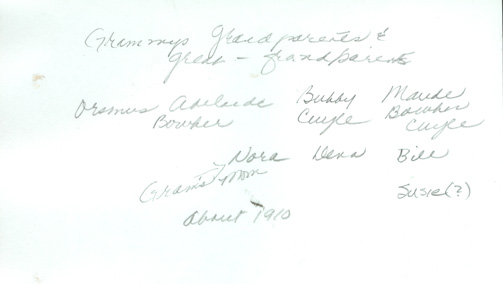 Grammys Grandparents &
great - grandparents
Oramus Adelaide Bubby Maude
Bowker Cuyle Bowker
Cuyle
Nora Dena Bill
Gram's Mom Susie(?)
About 1910